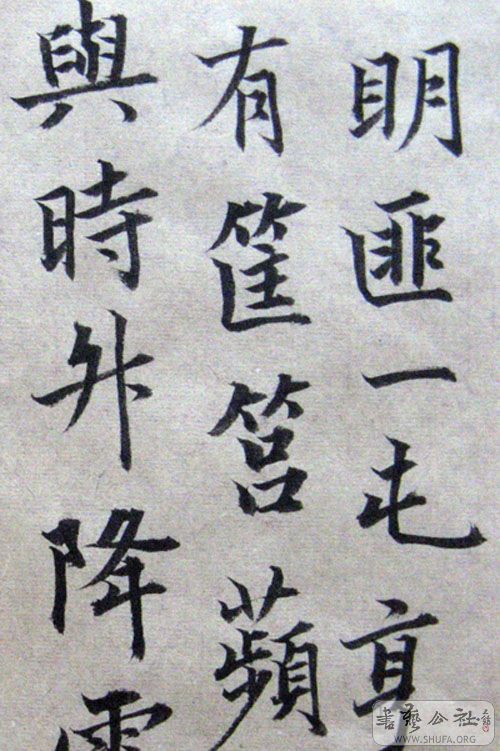 眀匪一屯
有筐筥蘋
與時升降
書藝公社
WWW.SHUFA.ORG